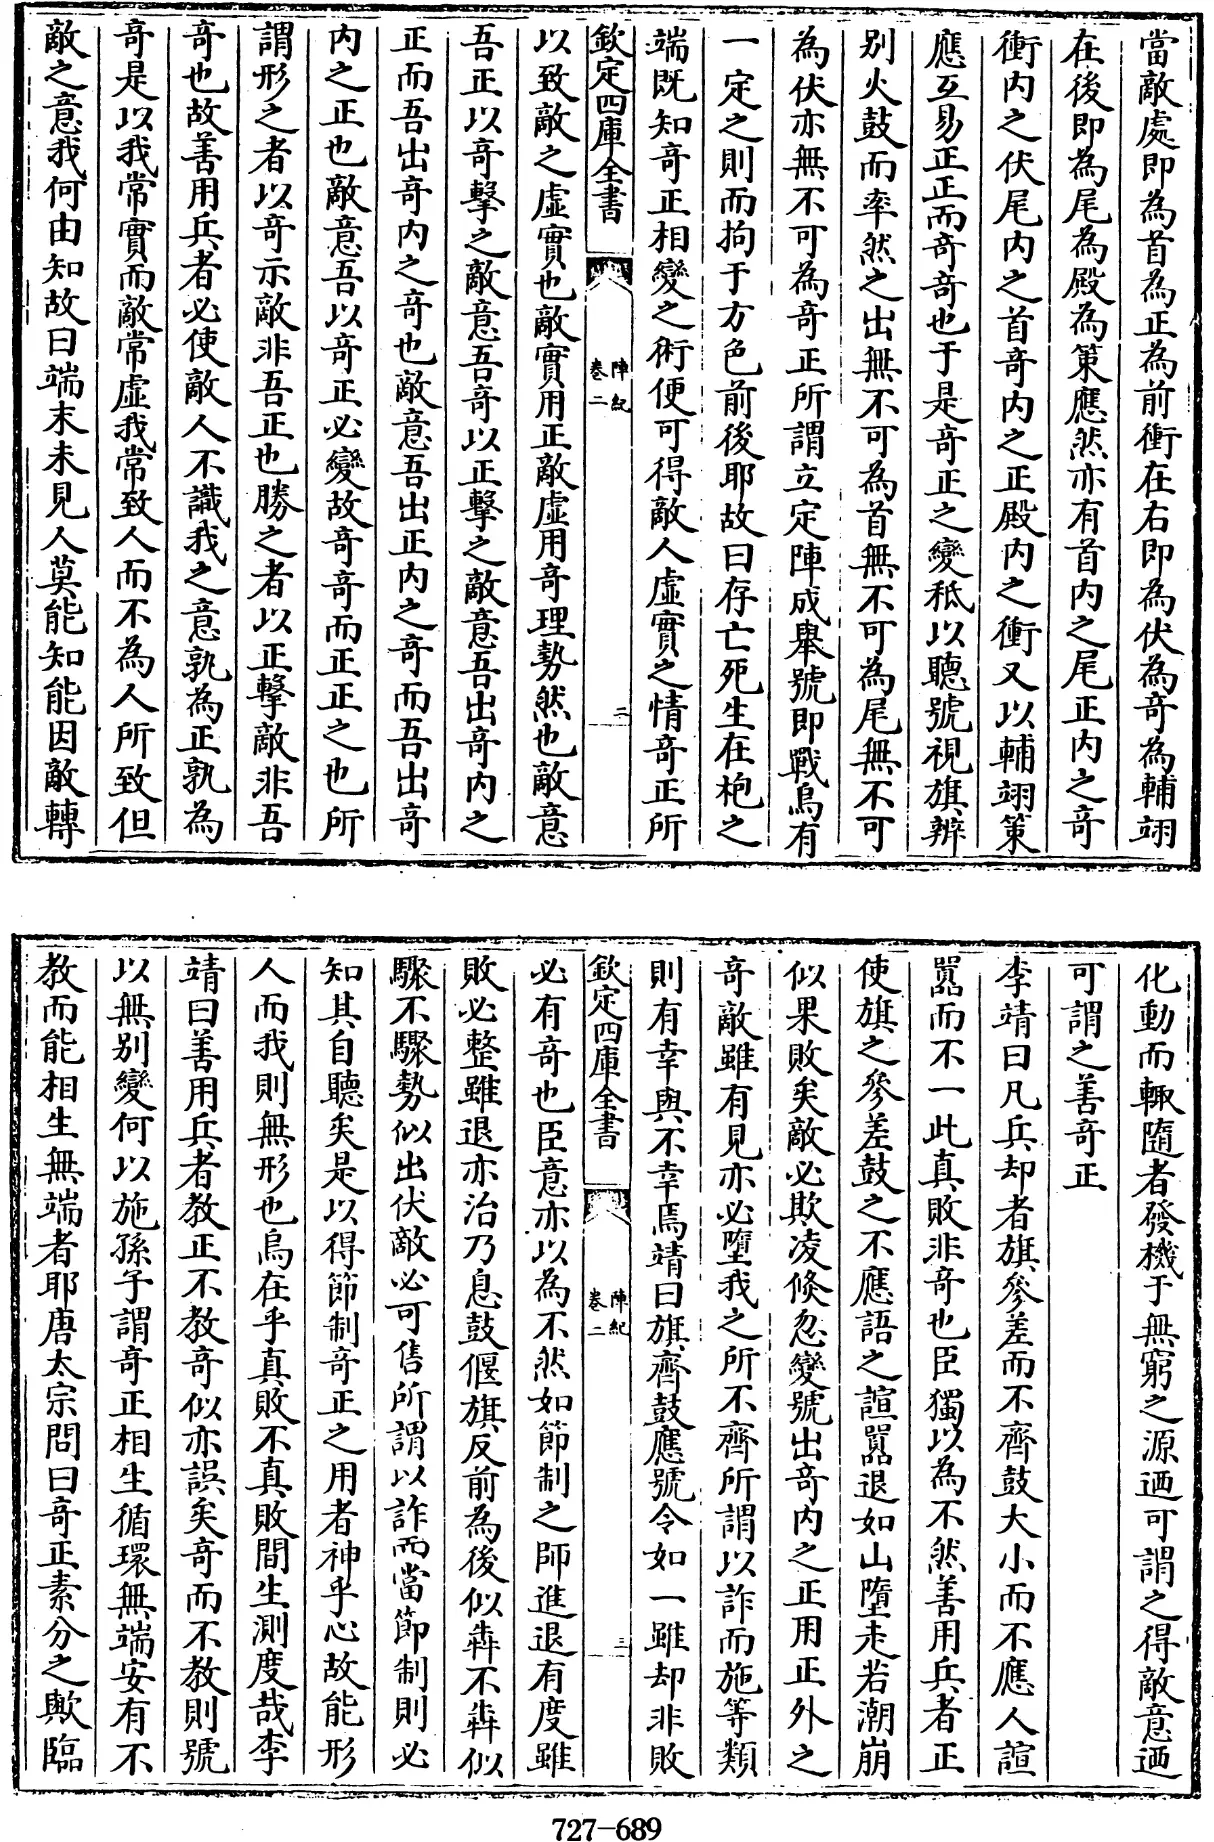 當敵處即為首為正為前衝在右即為伏為奇為輔翊
在後即為尾為殿為策應然亦有首内之尾正内之奇
衝内之伏尾内之首奇内之正殿内之衝又以輔翊策
應互易正正而奇奇也于是奇正之變秪以聽號視旗辨
别火鼓而率然之出無不可為首無不可為尾無不可
為伏亦無不可為奇正所謂立定陣成舉號即戰烏有
一定之則而拘于方色前後耶故曰存亡死生在枹之
端既知奇正相變之術便可得敵人虛實之情奇正所
欽定四庫全書
陣紀
卷二
二
以致敵之虛實也敵實用正敵虛用奇理勢然也敵意
吾正以奇擊之敵意吾奇以正擊之敵意吾出奇内之
正而吾出奇内之奇也敵意吾出正内之奇而吾出奇
内之正也敵意吾以奇正必變故奇奇而正正之也所
謂形之者以奇示敵非吾正也勝之者以正擊敵非吾
奇也故善用兵者必使敵人不識我之意孰為正孰為
奇是以我常實而敵常虛我常致人而不為人所致但
敵之意我何由知故曰端末未見人莫能知能因敵轉
化動而輙隨者發機于無窮之源迺可謂之得敵意迺
可謂之善奇正
李靖曰凡兵却者旗參差而不齊鼓大小而不應人諠
嚻而不一此真敗非奇也臣獨以為不然善用兵者正
使旗之參差鼓之不應語之諠嚻退如山墮走若潮崩
似果敗矣敵必欺凌倐忽變號出奇内之正用正外之
奇敵雖有見亦必墮我之所不齊所謂以詐而施等類
則有幸與不幸焉靖曰旗齊鼓應號令如一雖却非敗
欽定四庫全書
陣紀
卷二
三
必有奇也臣意亦以為不然如節制之師進退有度雖
敗必整雖退亦治乃息鼓偃旗反前為後似犇不犇似
驟不驟勢似出伏敵必可售所謂以詐而當節制則必
知其自聽矣是以得節制奇正之用者神乎心故能形
人而我則無形也烏在乎真敗不真敗間生測度哉李
靖曰善用兵者教正不教奇似亦誤矣奇而不教則號
以無别變何以施孫子謂奇正相生循環無端安有不
教而能相生無端者耶唐太宗問曰奇正素分之歟臨
727-689